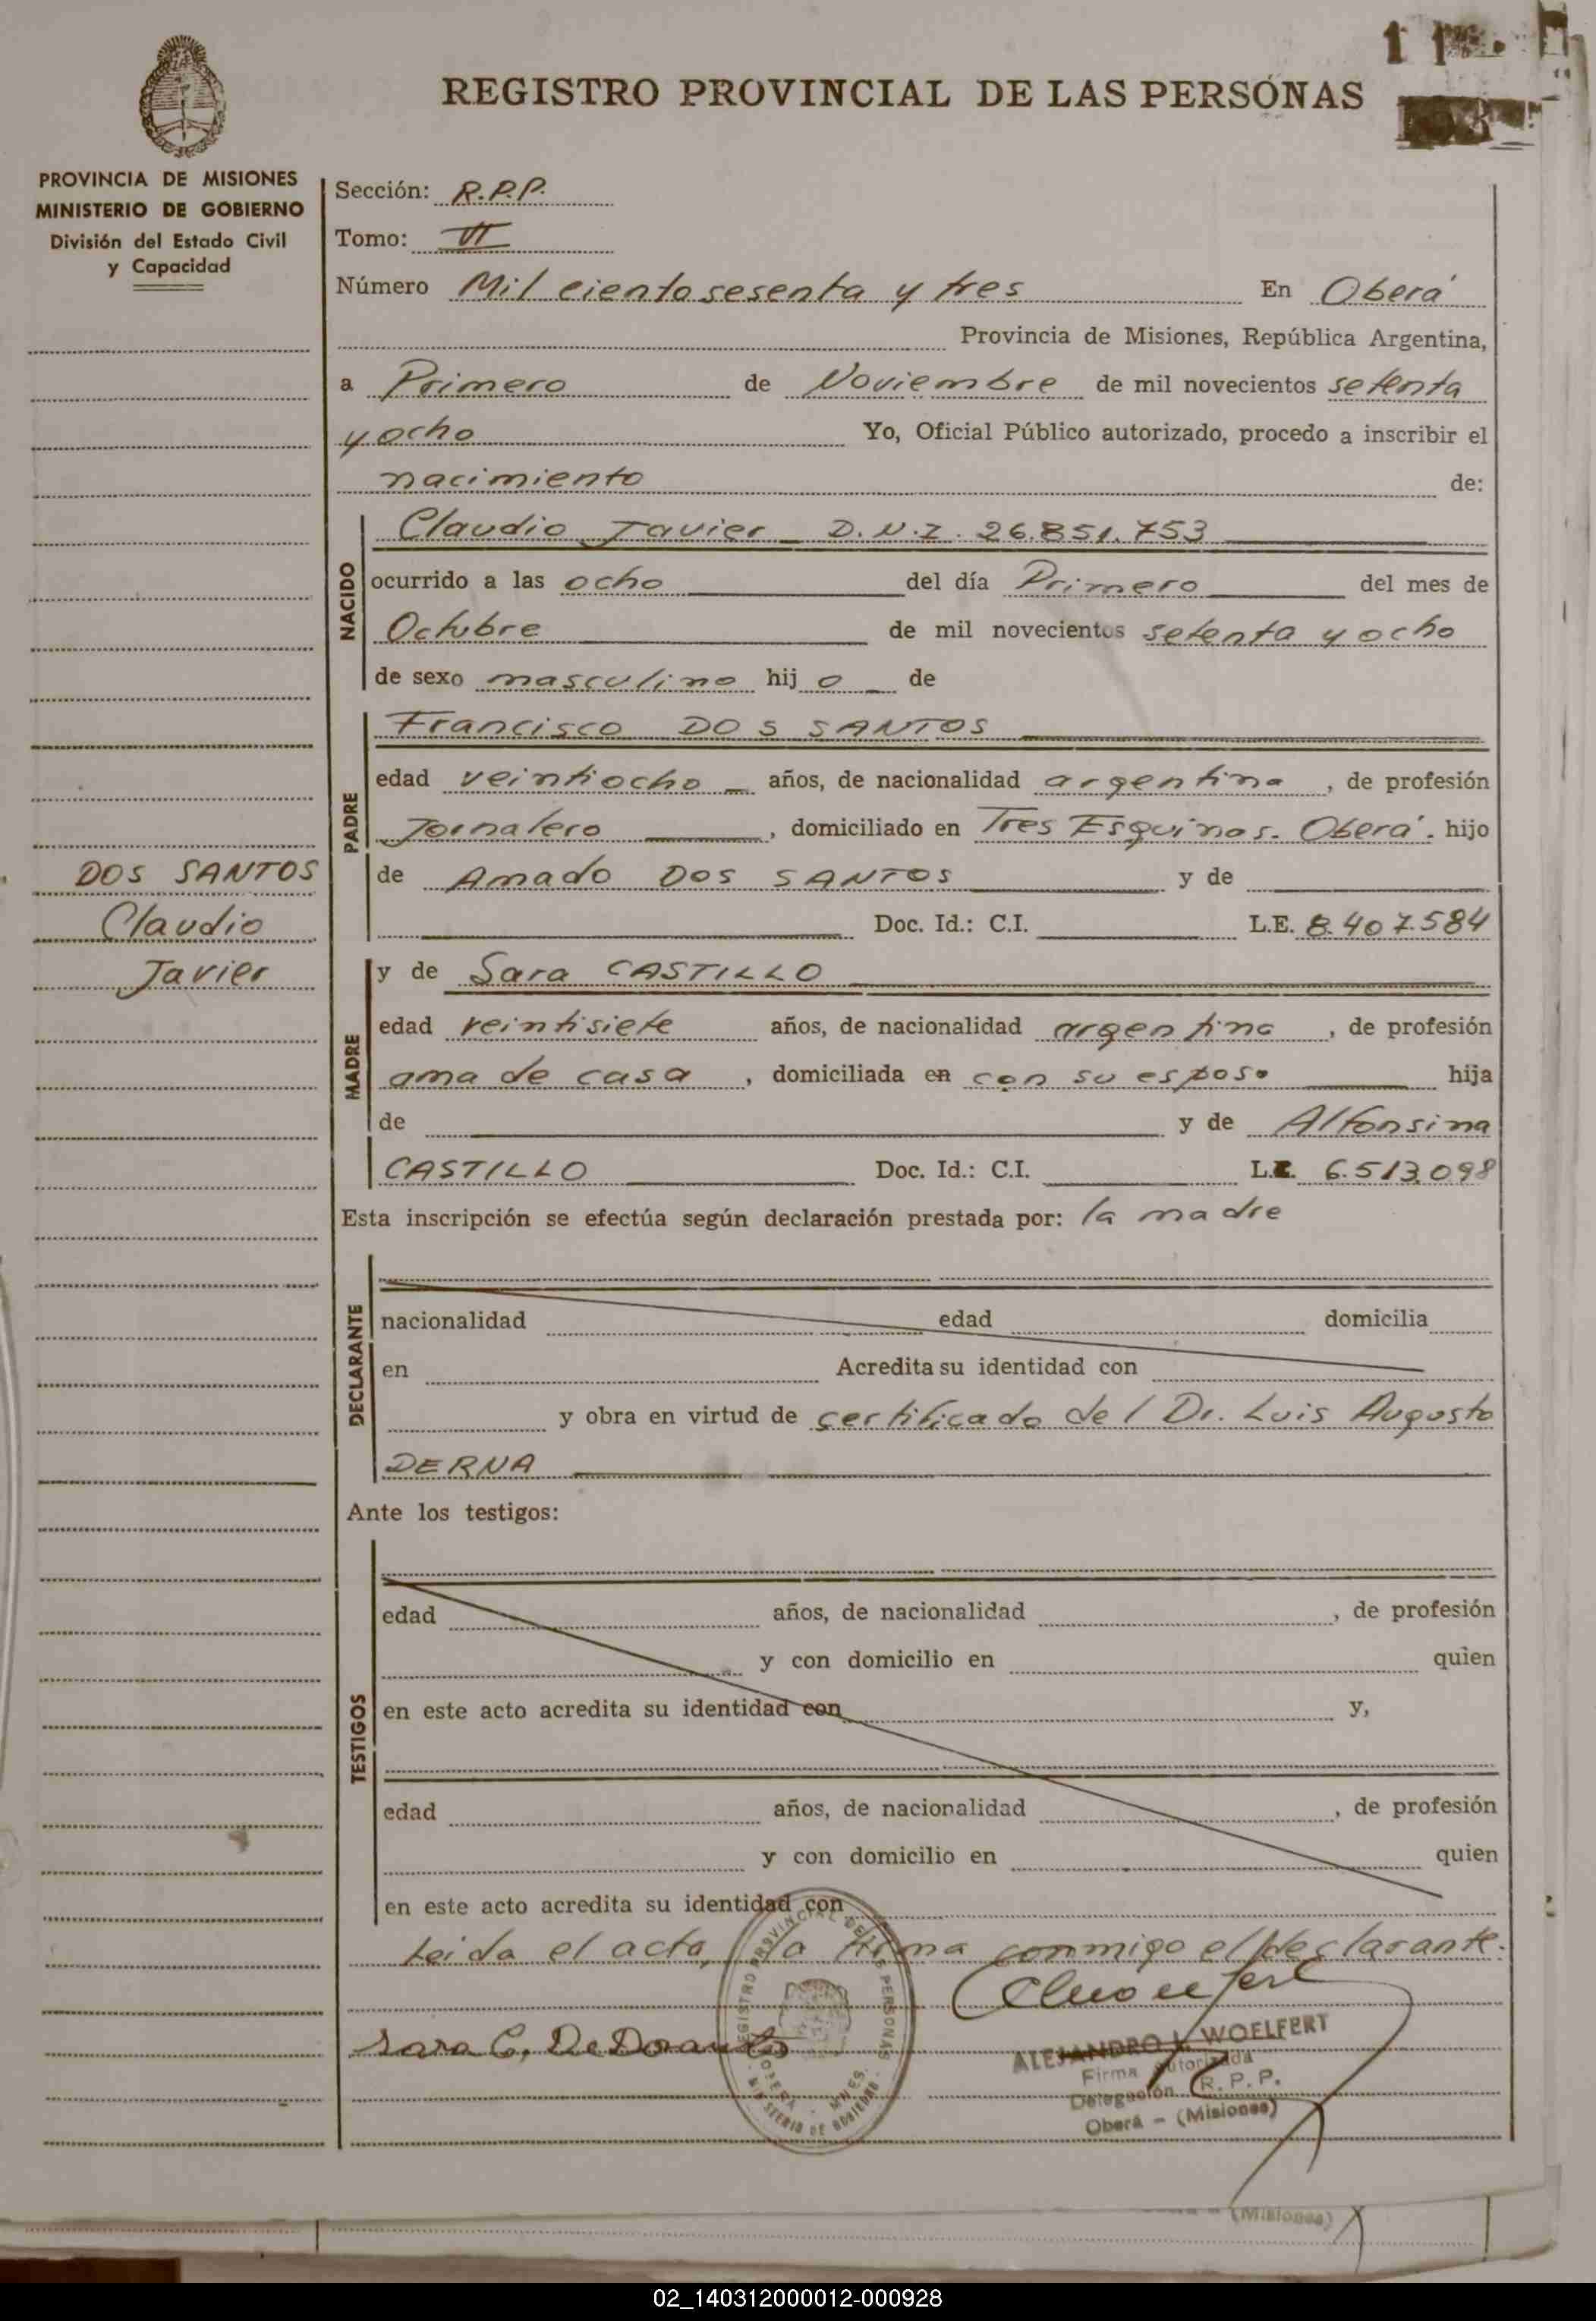 REGISTRO PROVINCIAL DE LAS PERSONAS
PROVINCIA DE MISIONES
MINISTERIO DE GOBIERNO
División del Estado Civil
y Capacidad
Sección: R.P.P.
Tomo: VI
Número Mil ciento sesenta y tres En Oberá
Provincia de Misiones, República Argentina,
a Primero de Noviembre de mil novecientos setenta
y ocho Yo, Oficial Público autorizado, procedo a inscribir el
nacimiento de:
NACIDO
Claudio Javier D.N.I. 26.851.753
ocurrido a las ocho del día Primero del mes de
Octubre de mil novecientos setenta y ocho
de sexo masculino hijo de
PADRE
Francisco DOS SANTOS
edad veintiocho años, de nacionalidad argentina, de profesión
Jornalero, domiciliado en Tres Esquinas. Oberá. hijo
de Amado DOS SANTOS y de
Doc. Id.: C.I. L.E. 8.407.584
DOS SANTOS
Claudio
Javier
MADRE
y de Sara CASTILLO
edad veintisiete años, de nacionalidad argentina, de profesión
ama de casa, domiciliada en con su esposo hija
de y de Alfonsina
CASTILLO Doc. Id.: C.I. L.C. 6.513.098
Esta inscripción se efectúa según declaración prestada por: la madre
DECLARANTE
nacionalidad edad domicilia
en Acredita su identidad con
y obra en virtud de certificado del Dr. Luis Augusto
DERNA
Ante los testigos:
TESTIGOS
edad años, de nacionalidad, de profesión
y con domicilio en quien
en este acto acredita su identidad con y,
edad años, de nacionalidad, de profesión
y con domicilio en quien
en este acto acredita su identidad con
Leida el acta, la firma conmigo el declarante.
REGISTRO PROVINCIAL DE LAS PERSONAS
OBERA - MNES.
MINISTERIO DE GOBIERNO
Sara C. De Dosantos
ALEJANDRO L. WOELFERT
Firma autorizada
Delegación R.P.P.
Oberá - (Misiones)
(Misiones)
02_140312000012-000928